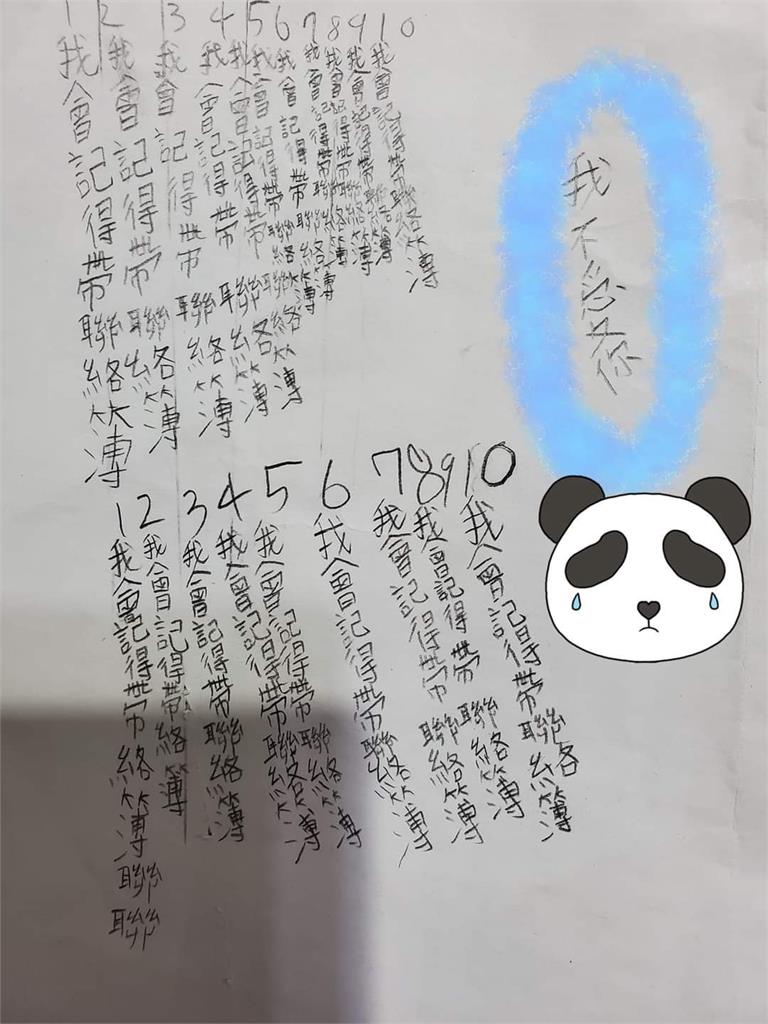 1我會記得帶聯絡簿
2我會記得帶聯絡簿
3我會記得帶聯絡簿
4我會記得帶聯絡簿
5我會記得帶聯絡簿
6我會記得帶聯絡簿
7我會記得帶聯絡簿
8我會記得帶聯絡簿
9我會記得帶聯絡簿
10我會記得帶聯絡簿
我不愛你
1我會記得帶絡簿聯聯
2我會記得帶絡簿
3我會記得帶聯絡簿
4我會記得帶聯絡簿
5我會記得帶聯絡簿
6我會記得帶聯絡簿
7我會記得帶聯絡簿
8我會記得帶聯絡簿
9
10我會記得帶聯絡簿